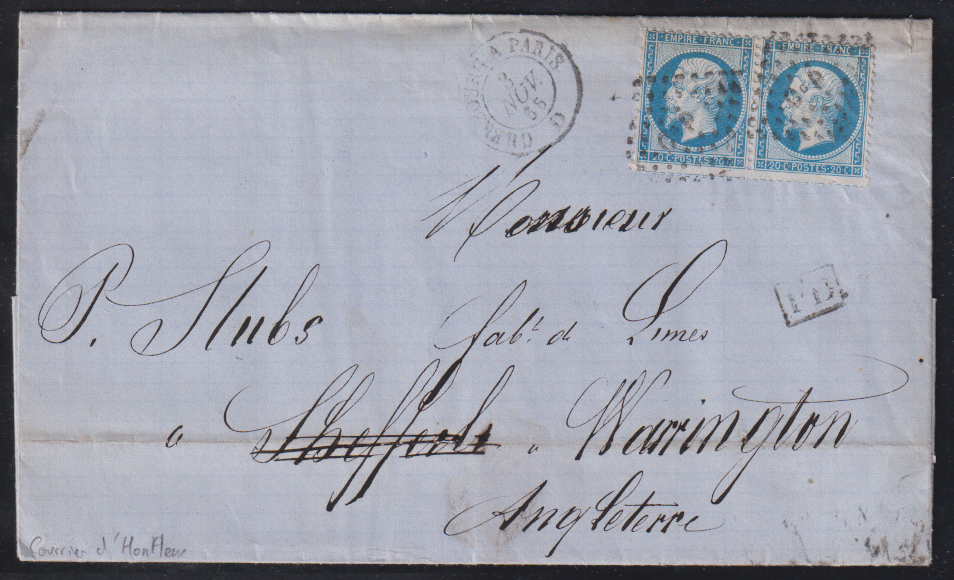 CHERBOURG A PARIS
3
NOV.
65
EMPIRE FRANC
20 C·POSTES·20 C
EMPIRE FRANC
20 C·POSTES·20 C
Monsieur
PD
P. Stubs fabt. de Limes
à Sheffield à Warrington
Angleterre
Courrier d'Honfleur